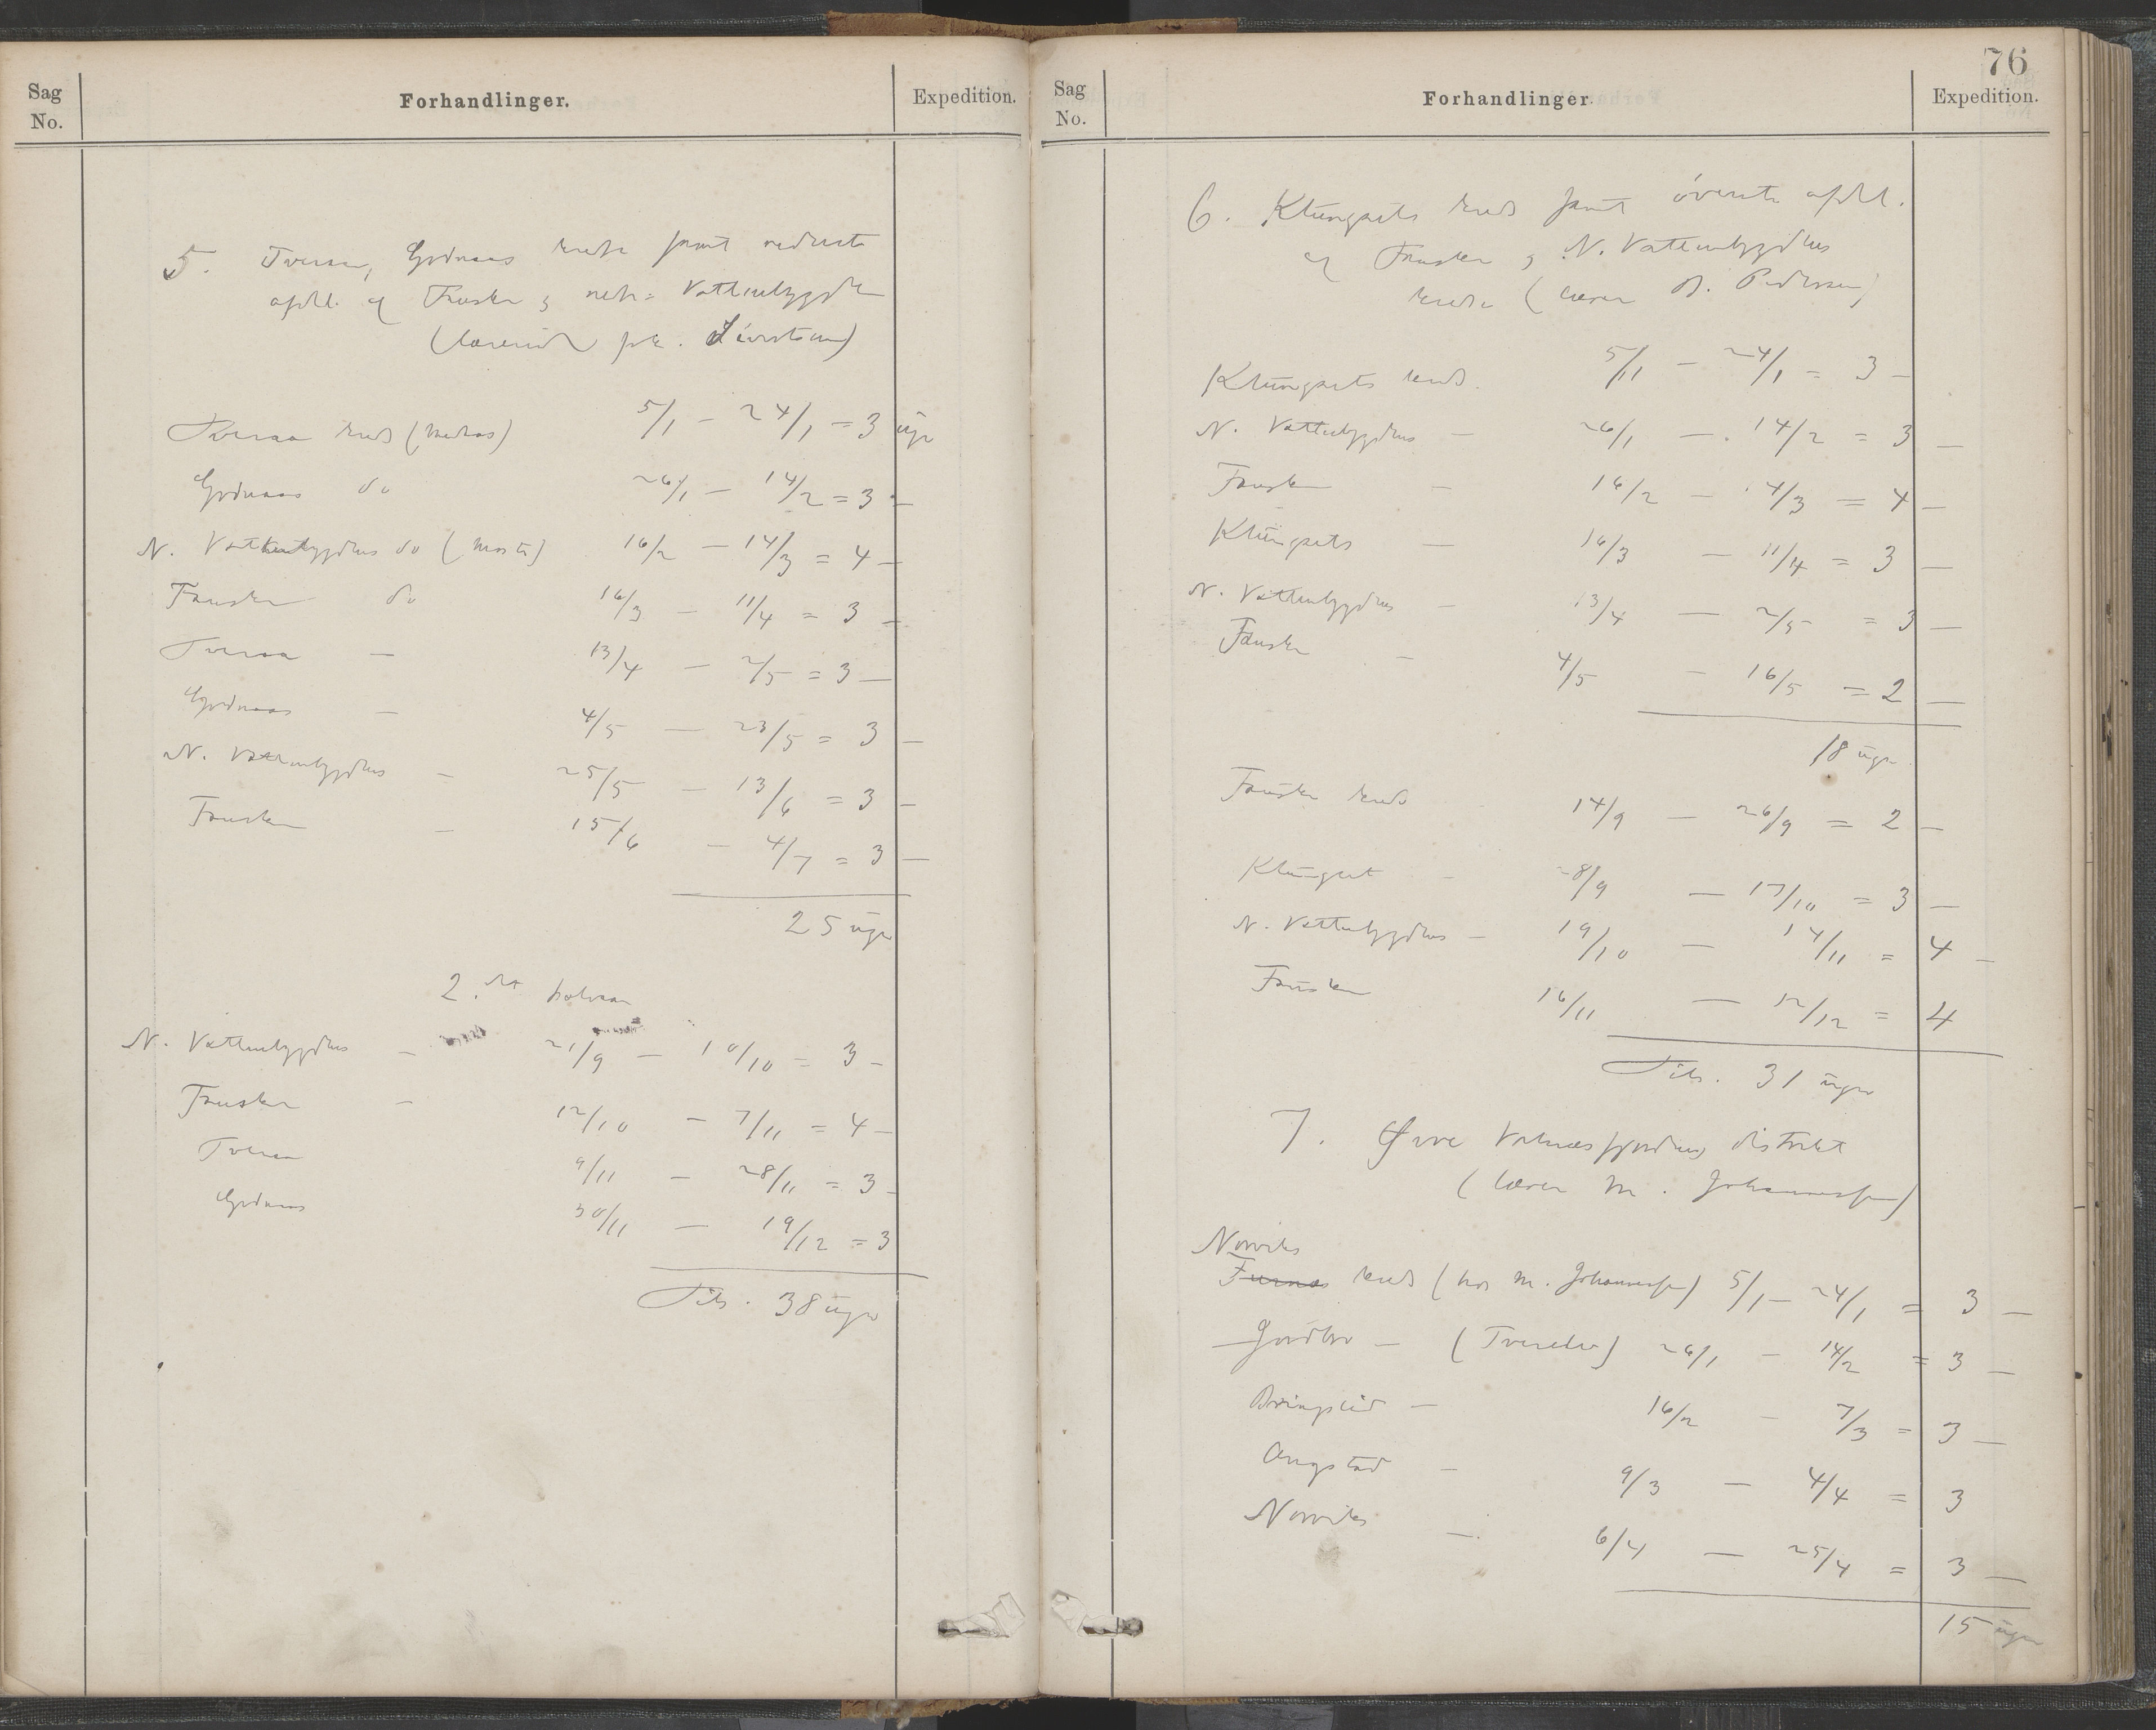 Sag
No.
Forhandlinger.
Expedition.
5. Tveraa, Godnaas kredse samt nederste
afdel. af Fauske og nedre Vattenbygdens
(lærerinde frk. Sivertsen)
Tveraa kreds (Mednos) 5/1 – 24/1 = 3 uger
Godnaas do 26/1 – 14/2 = 3 –
N. Vattenbygdens do (Moste) 16/2 – 14/3 = 4 –
Fauske do 16/3 – 11/4 = 3 –
Tveraa – 13/4 – 2/5 = 3 –
Godnaas – 4/5 – 23/5 = 3 –
N. Vattenbygdens – 25/5 – 13/6 = 3 –
Fauske – 15/6 – 4/7 = 3 –
25 uger
2.det halvaar
N. Vattenbygdens – 21/9 – 10/10 = 3 –
Fauske – 12/10 – 7/11 = 4 –
Tveraa 9/11 – 28/11 = 3 –
Godnaas 30/11 – 19/12 = 3
Tils. 38 uger
76
Sag
No.
Forhandlinger.
Expedition.
6. Klungsets kreds samt øverste afdel.
af Fauske og N. Vattenbygdens
kredse (lærer O. Pedersen)
Klungsets kreds. 5/11 – 24/1 = 3 –
N. Vattenbygdens – 26/1 – 14/2 = 3 –
Fauske – 16/2 – 14/3 = 4 –
Klungsets – 16/3 – 11/4 = 3 –
N. Vattenbygdens – 13/4 – 2/5 = 3 –
Fauske – 4/5 – 16/5 = 2 –
18 uger
Fauske kreds 14/9 – 26/9 = 2 –
Klungset – 28/9 – 17/10 = 3 –
N. Vattenbygdens – 19/10 – 14/11 = 4 –
Fauske 16/11 – 12/12 = 4
Tils. 31 uger
7. Øvre Valnesfjordens distrikt
(lærer M. Johannessen)
Norviks
Furnes kreds (hos M. Johannessen) 5/1 – 24/1 = 3 –
Jordbro – (Tverelv) 26/1 – 14/2 = 3 –
Bringslid – 16/2 – 7/3 = 3 –
Angstad – 9/3 – 4/4 = 3
Norviks – 6/4 – 25/4 = 3 –
15 uger